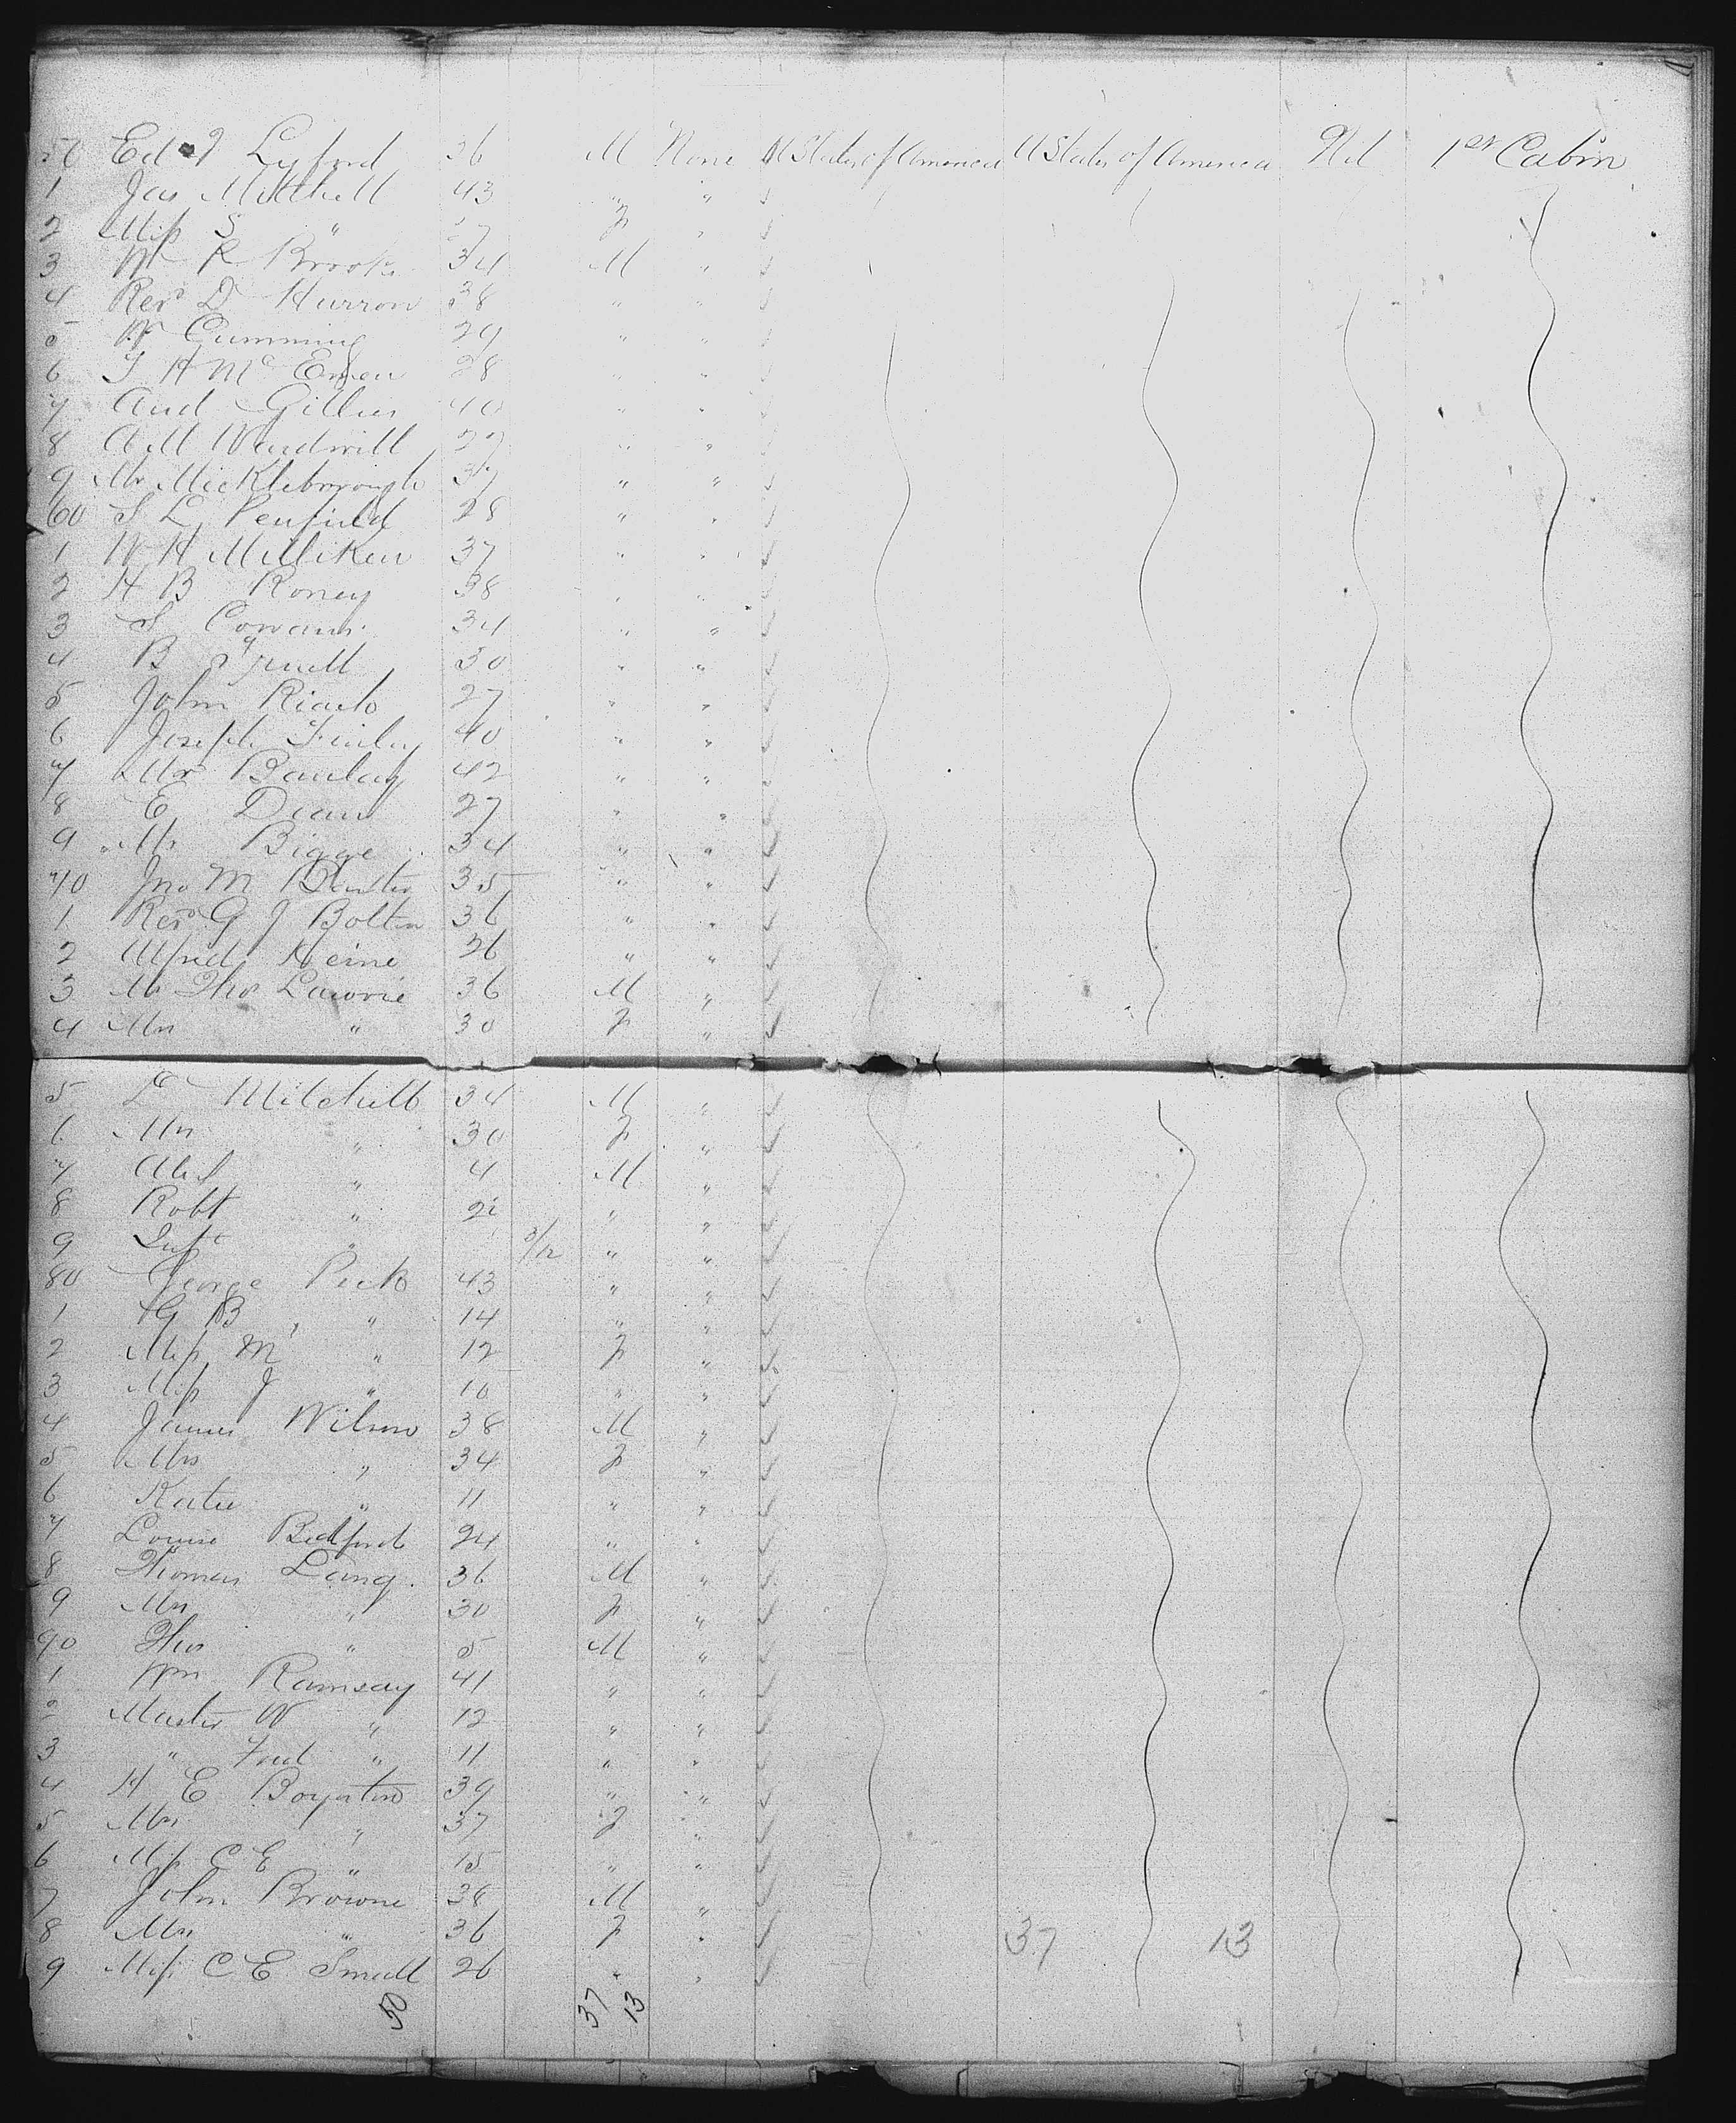 50 Ed Lyford 36 M None U States of America U States of America Nil 1st Cabin
1 Jas Mitchell 43 " "
2 Miss S " F "
3 W R Brooks 34 M "
4 Revd D Hurron 38 " "
5 W Cumming 29 " "
6 J H Mc Ewen 28 " "
7 And Gillies 40 " "
8 A M Wardwill 27 " "
9 Mr Mickleborough 37 " "
60 S L Penfield 28 " "
1 W H Milliken 37 " "
2 H B Roney 38 " "
3 S Cowans 34 " "
4 B 30 " "
5 John 27 " "
6 Joseph Finley 40 " "
7 Mr Barclay 42 " "
8 E Dean 27 " "
9 Mr Bigge 34 " "
70 Jno M 35 " "
1 Revd G J Bolton 36 " "
2 Alfred Heine 26 " "
3 Mr Thos Lawrie 36 M "
4 Mrs " 30 F "
5 D Mitchell 34 M "
6 Mrs " 30 F "
7 " 4 M "
8 Robt " 2 " "
9 Inft " 3/12 " "
80 George Peck 43 " "
1 G B " 14 " "
2 Miss M " 12 F "
3 Miss J " 10 " "
4 James Wilson 38 M "
5 Mrs " 34 F "
6 Katie " 11 " "
7 Louise Bedford 24 " "
8 Thomas Lang 36 M "
9 Mrs " 30 F "
90 Thos " 5 M "
1 Wm Ramsay 41 " "
2 Master W " 12 " "
3 " Fred " 11 " "
4 H E Boynton 39 " "
5 Mrs " 37 F "
6 Miss C E " 15 " "
7 John Browne 38 M "
8 Mrs " 36 F " 37 13
9 Miss C E Small 26 " "
50 37 13